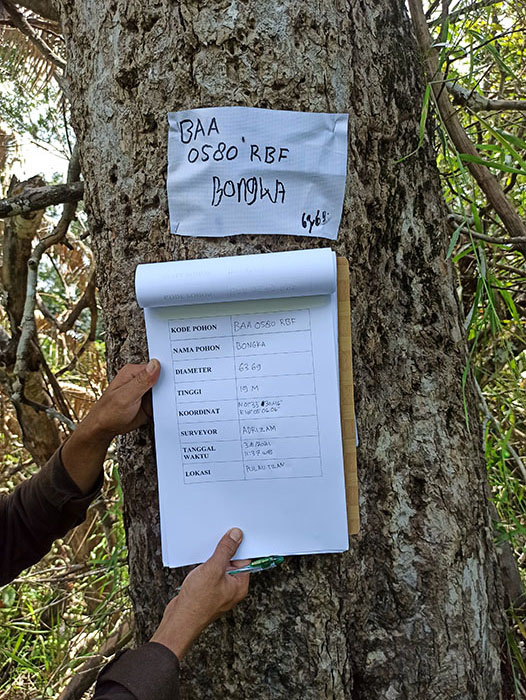 BAA
0580 RBF
BONGKA
63,69
KODE POHON BAA 0580 RBF
NAMA POHON BONGKA
DIAMETER 63.69
TINGGI 19 M
KOORDINAT
SURVEYOR
TANGGAL
WAKTU
LOKASI PULAU TILAN